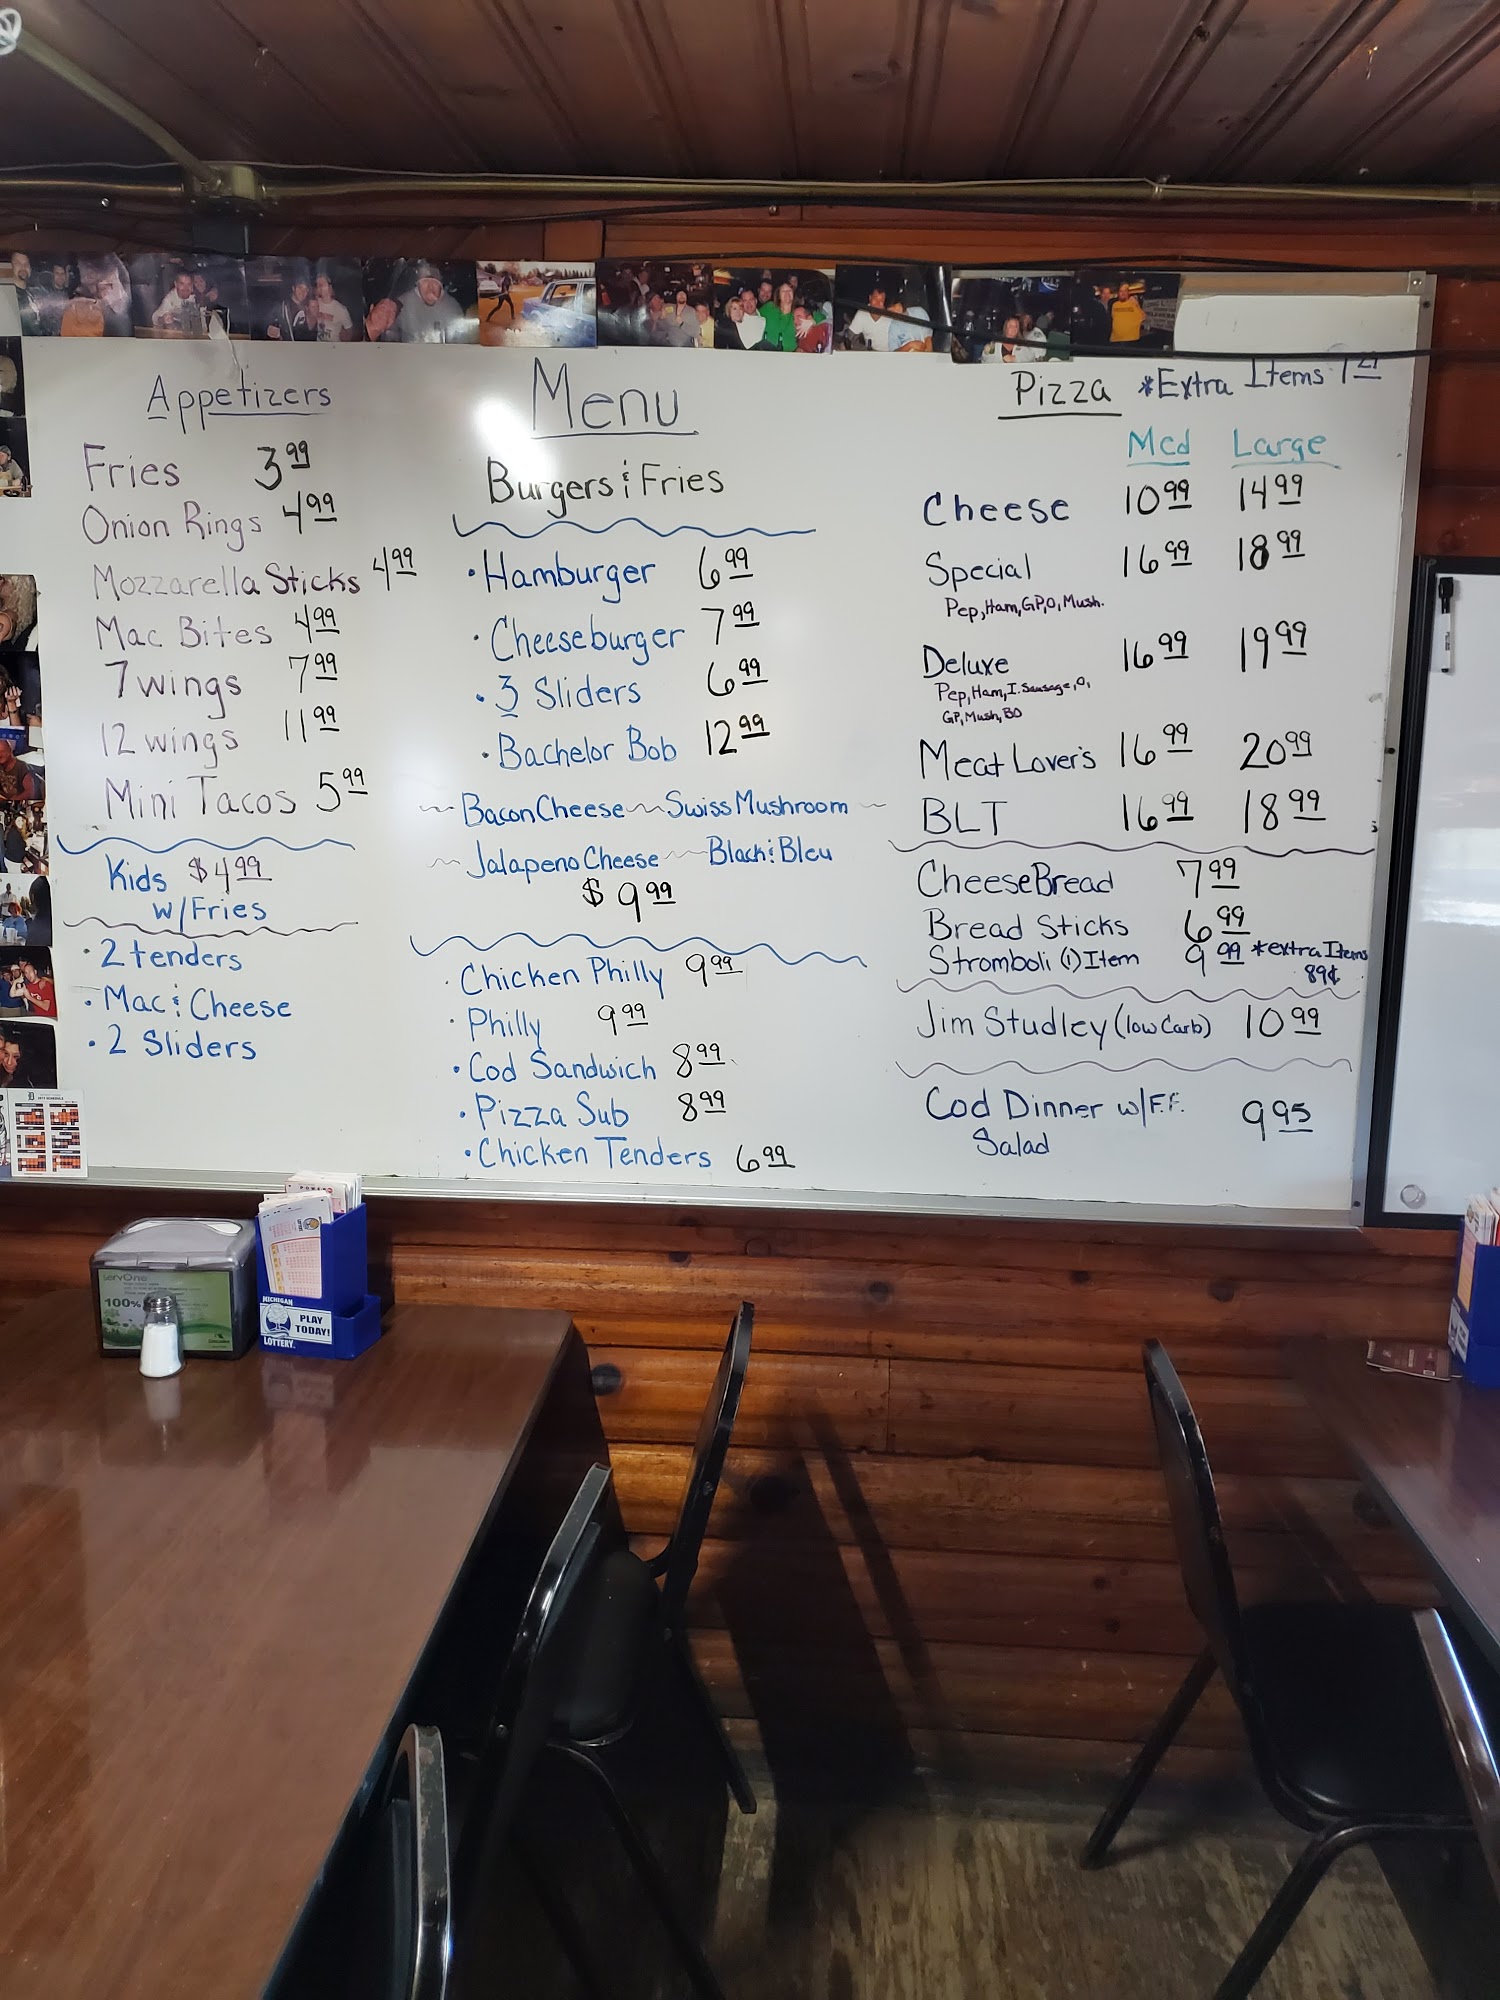 Appetizers
Fries 3.99
Onion Rings 4.99
Mozzarella Sticks 4.99
Mac Bites 4.99
7 wings 7.99
12 wings 11.99
Mini Tacos 5.99
Kids $4.99
w/Fries
• 2 tenders
• Mac & Cheese
• 2 Sliders
Menu
Burgers & Fries
• Hamburger 6.99
• Cheeseburger 7.99
• 3 Sliders 6.99
• Bachelor Bob 12.99
~ Bacon Cheese ~ Swiss Mushroom ~
~ Jalapeno Cheese ~ Black & Bleu
$9.99
• Chicken Philly 9.99
• Philly 9.99
• Cod Sandwich 8.99
• Pizza Sub 8.99
• Chicken Tenders 6.99
Pizza *Extra Items
Med Large
Cheese 10.99 14.99
Special 16.99 18.99
Pep, Ham, GP, O, Mush.
Deluxe 16.99 19.99
Pep, Ham, I. Sausage, O,
GP, Mush, BO
Meat Lover's 16.99 20.99
BLT 16.99 18.99
Cheese Bread 7.99
Bread Sticks 6.99
Stromboli (1) Item 9.99 *extra Items
89¢
Jim Studley (low Carb) 10.99
Cod Dinner w/F.F. 9.95
Salad
servOne
100%
MICHIGAN
PLAY
TODAY!
LOTTERY